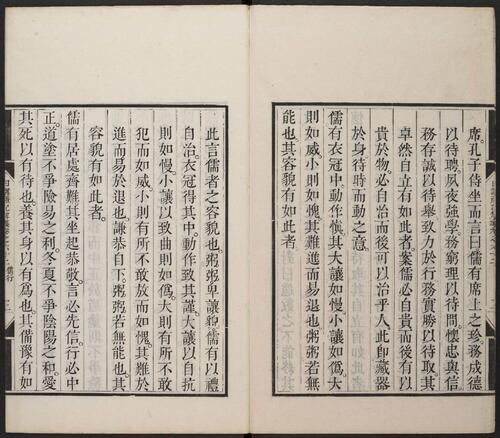 席。孔子侍坐而言曰。儒有席上之珍。務成德
以待聘。夙夜强學。務窮理以待問。懷忠與信
務存誠以待舉。致力於行。務實勝以待取。其
卓然自立有如此者。案儒必自貴而後有以
貴於物。必自治而後可以治乎人。此卽藏器
於身。待時而動之意。
儒有衣冠中。動作愼。其大讓如慢。小讓如僞。大
則如威。小則如愧。其難進而易退也。粥粥若無
能也。其容貌有如此者。
此言儒者之容貌也。粥粥。卑讓貌。儒有以禮
自治。衣冠得其中。動作致其謹。大讓以自抗
則如慢。小讓以致曲則如僞。大則有所不敢
犯而如威。小則有所不敢放而如愧。其難於
進而易於退也。謙恭自下。粥粥若無能也。其
容貌有如此者。
儒有居處齊難。其坐起恭敬。言必先信。行必中
正。道塗不爭險易之利。冬夏不爭陰陽之和。愛
其死以有待也。養其身以有爲也。其備豫有如